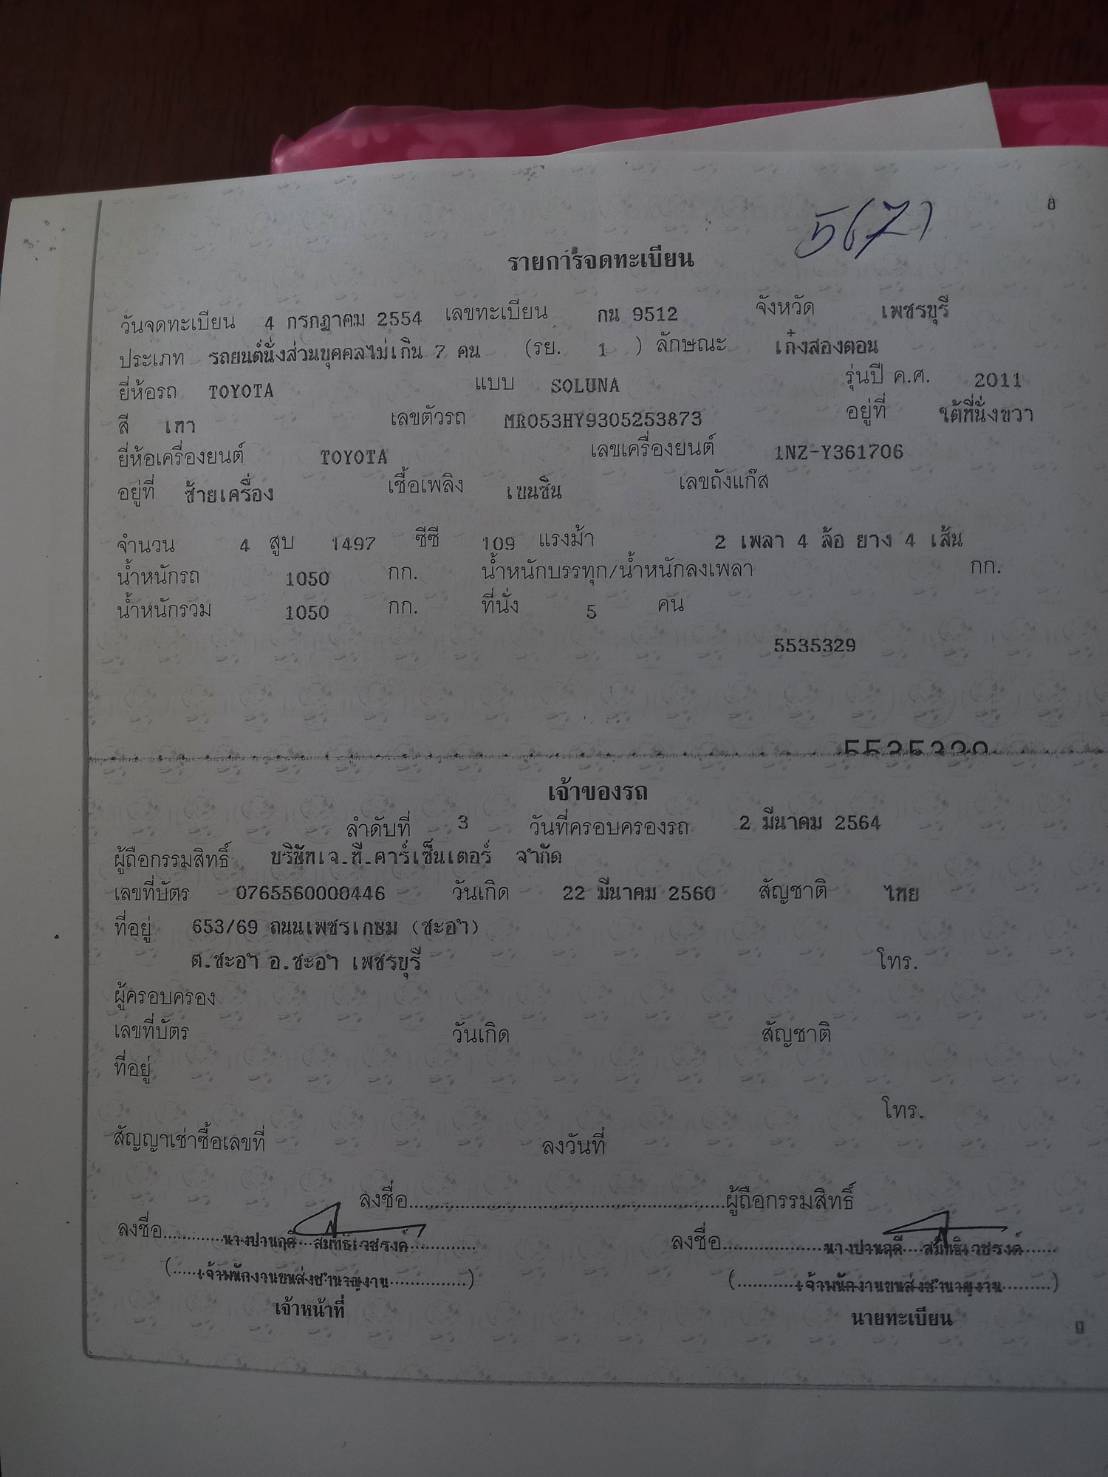 8
5671
รายการจดทะเบียน
วันจดทะเบียน 4 กรกฎาคม 2554 เลขทะเบียน กน 9512 จังหวัด เพชรบุรี
ประเภท รถยนต์นั่งส่วนบุคคลไม่เกิน 7 คน (รย. 1 ) ลักษณะ เก๋งสองตอน
ยี่ห้อรถ TOYOTA แบบ SOLUNA รุ่นปี ค.ศ. 2011
สี เทา เลขตัวรถ MR053HY9305253873 อยู่ที่ ใต้ที่นั่งขวา
ยี่ห้อเครื่องยนต์ TOYOTA เลขเครื่องยนต์ 1NZ-Y361706
อยู่ที่ ซ้ายเครื่อง เชื้อเพลิง เบนซิน เลขถังแก๊ส
จำนวน 4 สูบ 1497 ซีซี 109 แรงม้า 2 เพลา 4 ล้อ ยาง 4 เส้น
น้ำหนักรถ 1050 กก. น้ำหนักบรรทุก/น้ำหนักลงเพลา กก.
น้ำหนักรวม 1050 กก. ที่นั่ง 5 คน
5535329
5535329
เจ้าของรถ
ลำดับที่ 3 วันที่ครอบครองรถ 2 มีนาคม 2564
ผู้ถือกรรมสิทธิ์ บริษัทเจ.ที.คาร์เซ็นเตอร์ จำกัด
เลขที่บัตร 0765560000446 วันเกิด 22 มีนาคม 2560 สัญชาติ ไทย
ที่อยู่ 653/69 ถนนเพชรเกษม (ชะอำ)
ต.ชะอำ อ.ชะอำ เพชรบุรี โทร.
ผู้ครอบครอง
เลขที่บัตร วันเกิด สัญชาติ
ที่อยู่
โทร.
สัญญาเช่าซื้อเลขที่ ลงวันที่
ลงชื่อ............................................ผู้ถือกรรมสิทธิ์
ลงชื่อ..........นางปานฤดี...สมิทธิเวชรงค์.......... ลงชื่อ..........นางปานฤดี...สมิทธิเวชรงค์......
(.....เจ้าพนักงานขนส่งชำนาญงาน.............) (..........เจ้าพนักงานขนส่งชำนาญงาน.........)
เจ้าหน้าที่ นายทะเบียน